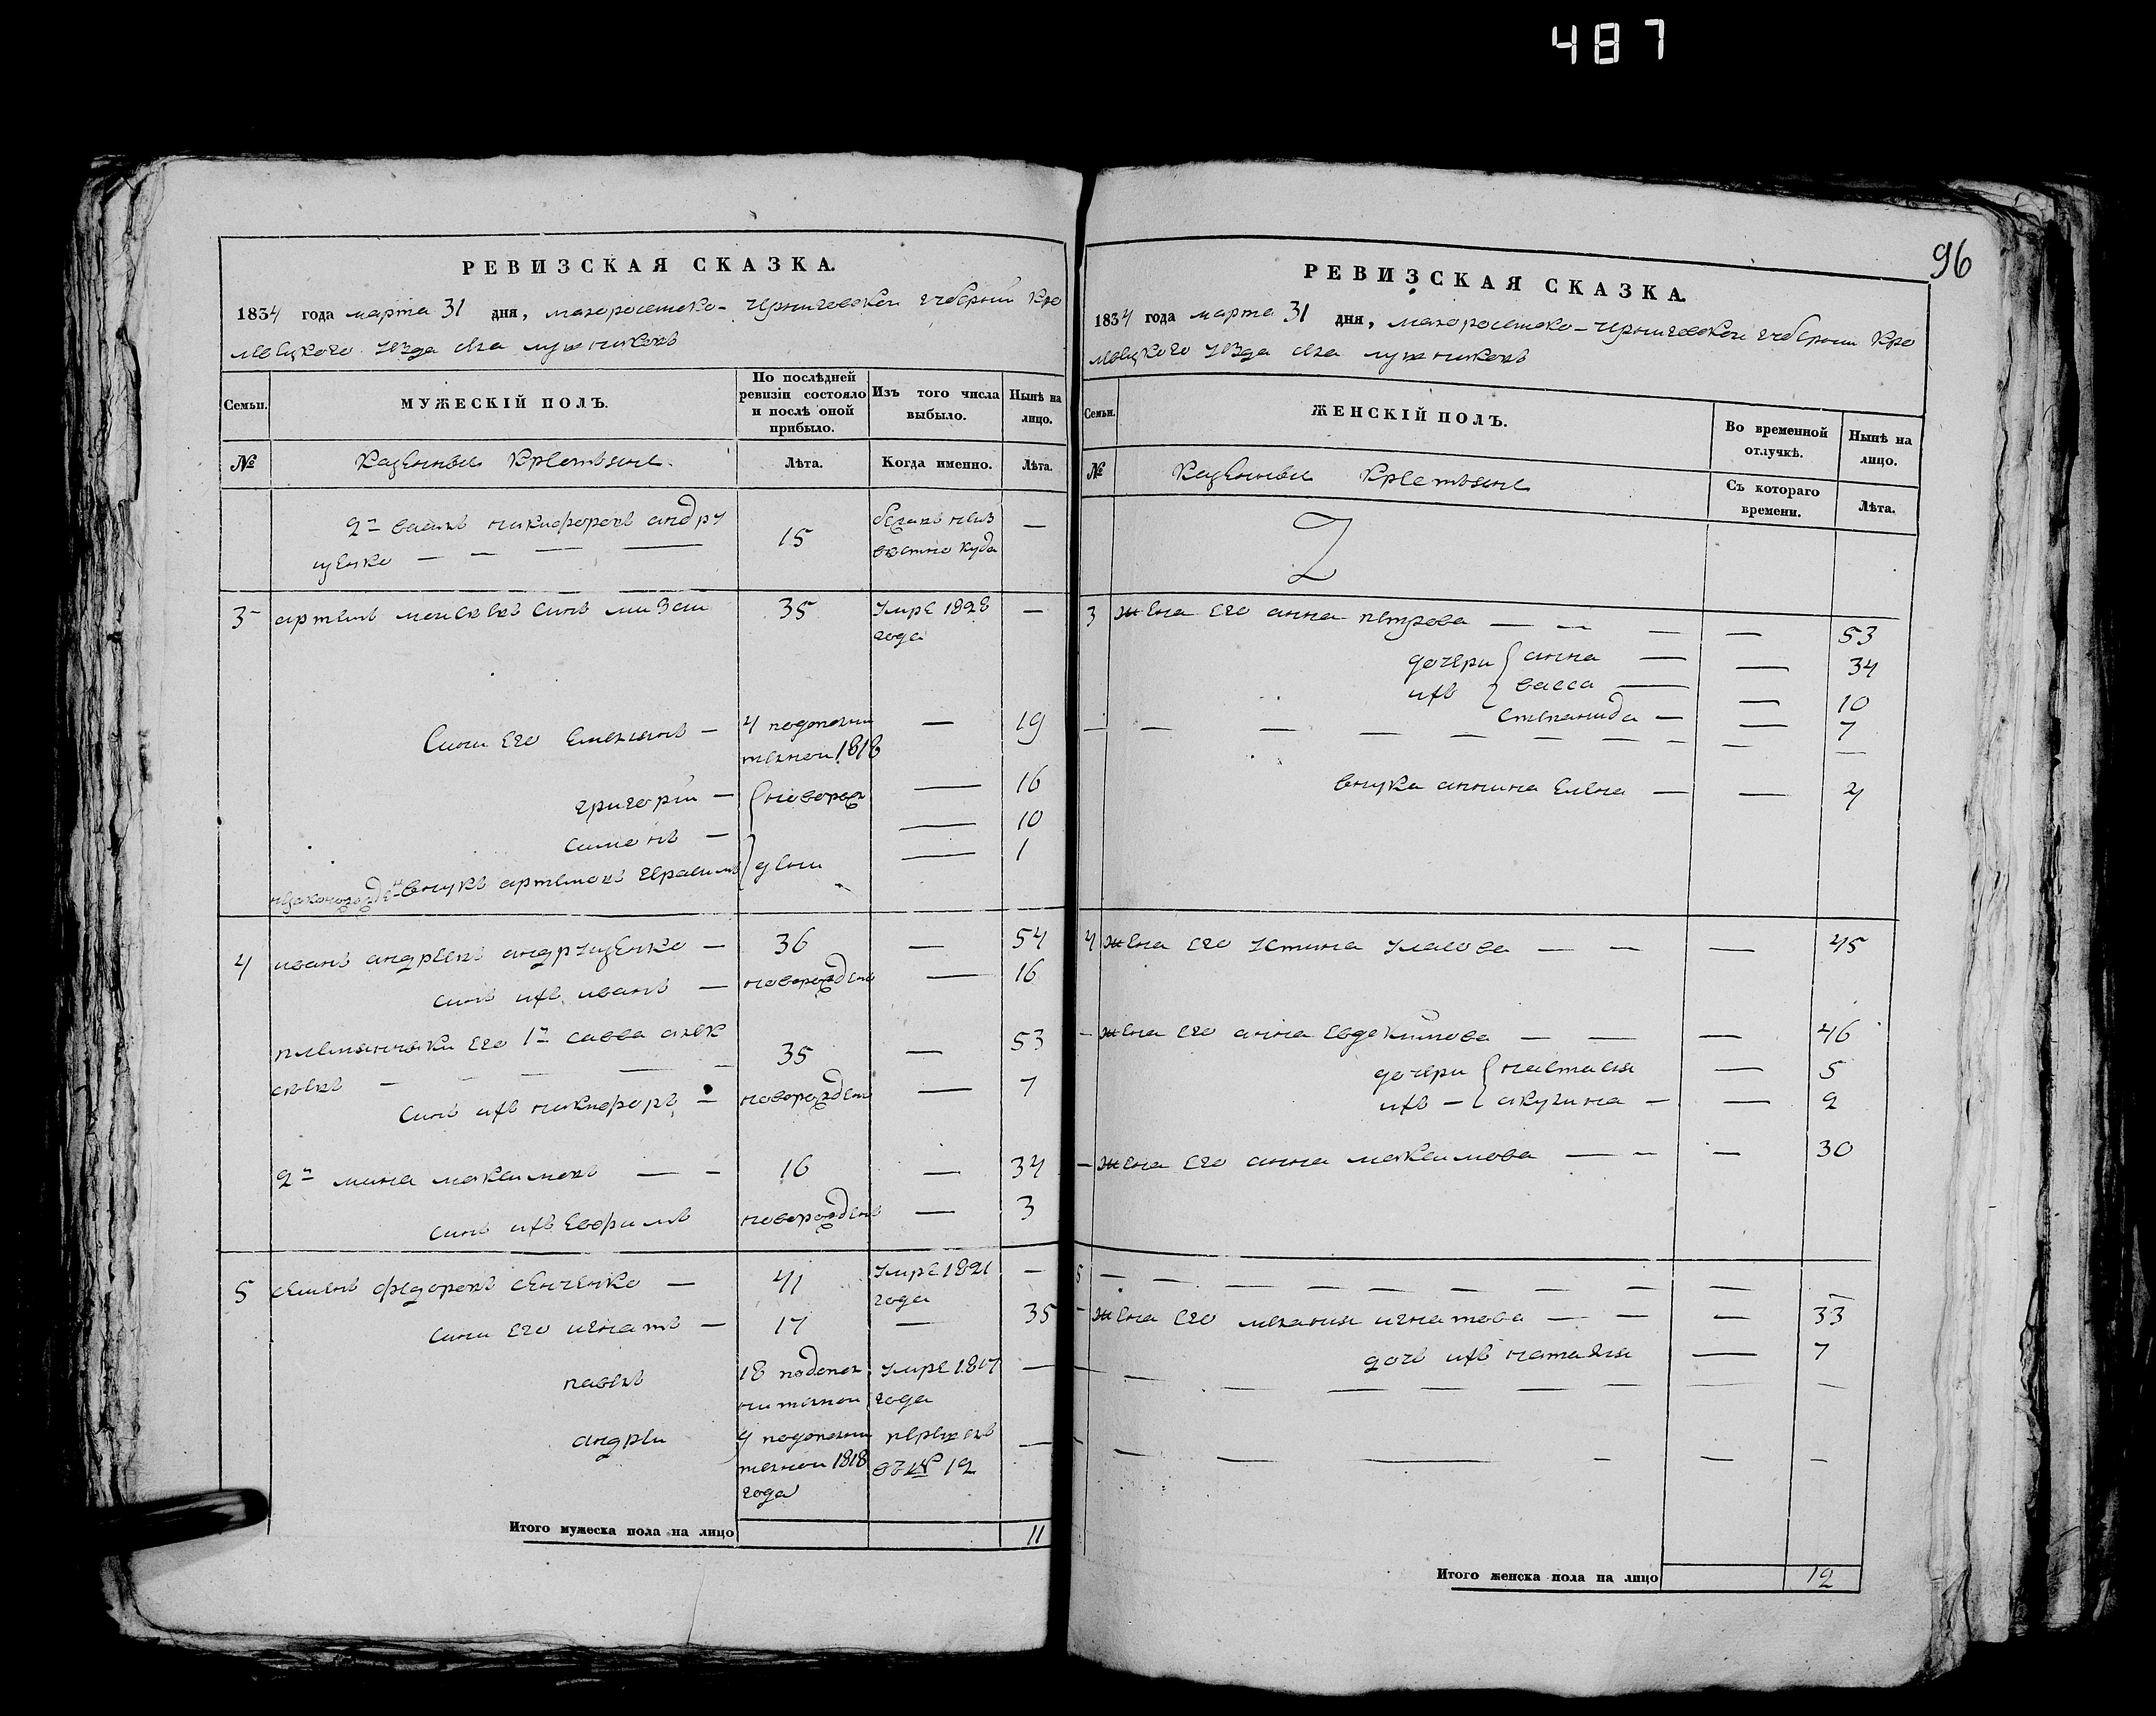 487
РЕВИЗСКАЯ СКАЗКА.
1834 года марта 31 дня, малоросииско-черниговской губернии Кро
левцкого уезда села лужниковъ
Семьи.
МУЖЕСКІЙ ПОЛЪ.
По послѣдней ревизіи состояло и послѣ оной прибыло.
Изъ того числа выбыло.
Нынѣ на лицо.
№
Казенныи Крестьяне
Лѣта.
Когда именно.
Лѣта.
2й никифоровъ андру
щенко — — — — 15 неиз —
вестно куда
3 артемъ сынъ 35 умре 1828 —
года
Сыни его емельянъ — 4 — 19
1818
григории — новорож — 16
симонъ — — 10
внукъ артемовъ дени — 1
4 иванъ андреевъ андрущенко — 36 — 54
сынъ ихъ иванъ — новорожденъ — 16
племянники его 1й савва алек
сеевъ — — — — — 35 — 53
сынъ ихъ никифоръ — новорожденъ — 7
2й мина максимовъ — — 16 — 34
сынъ ихъ ефримъ новорожденъ — 3
5 семенъ федоровъ сенченко — 41 умре 1821 —
года
сыни его игнатъ — 17 — 35
павелъ 18 умре 1817 —
года
андреи 4 —
1818 № 12
года
Итого мужеска пола на лицо 11
96
РЕВИЗСКАЯ СКАЗКА.
1834 года марта 31 дня, малоросииско-черниговской губернии Кро
левцкого уезда села лужниковъ
Семьи.
ЖЕНСКІЙ ПОЛЪ.
Во временной отлучкѣ.
Нынѣ на лицо.
№
Казенныи Крестьяне
Съ котораго времени.
Лѣта.
3 жена его анна петрова — — — — 53
дочери анна — — 34
ихъ васса — — 10
степанида — — 7
— — — — — — — — — — —
внука аннина елена — — 4
4 жена его устина уласова — — — 45
— жена его анна евдокимова — — — 46
дочери настасия — 5
ихъ — акулина — — 2
— жена его анна максимова — — — 30
5 — — — — — — — — — —
— жена его мелания игнатова — — — 33
дочъ ихъ наталия — 7
— — — — — — — — —
— — — — — — —
Итого женска пола на лицо 12